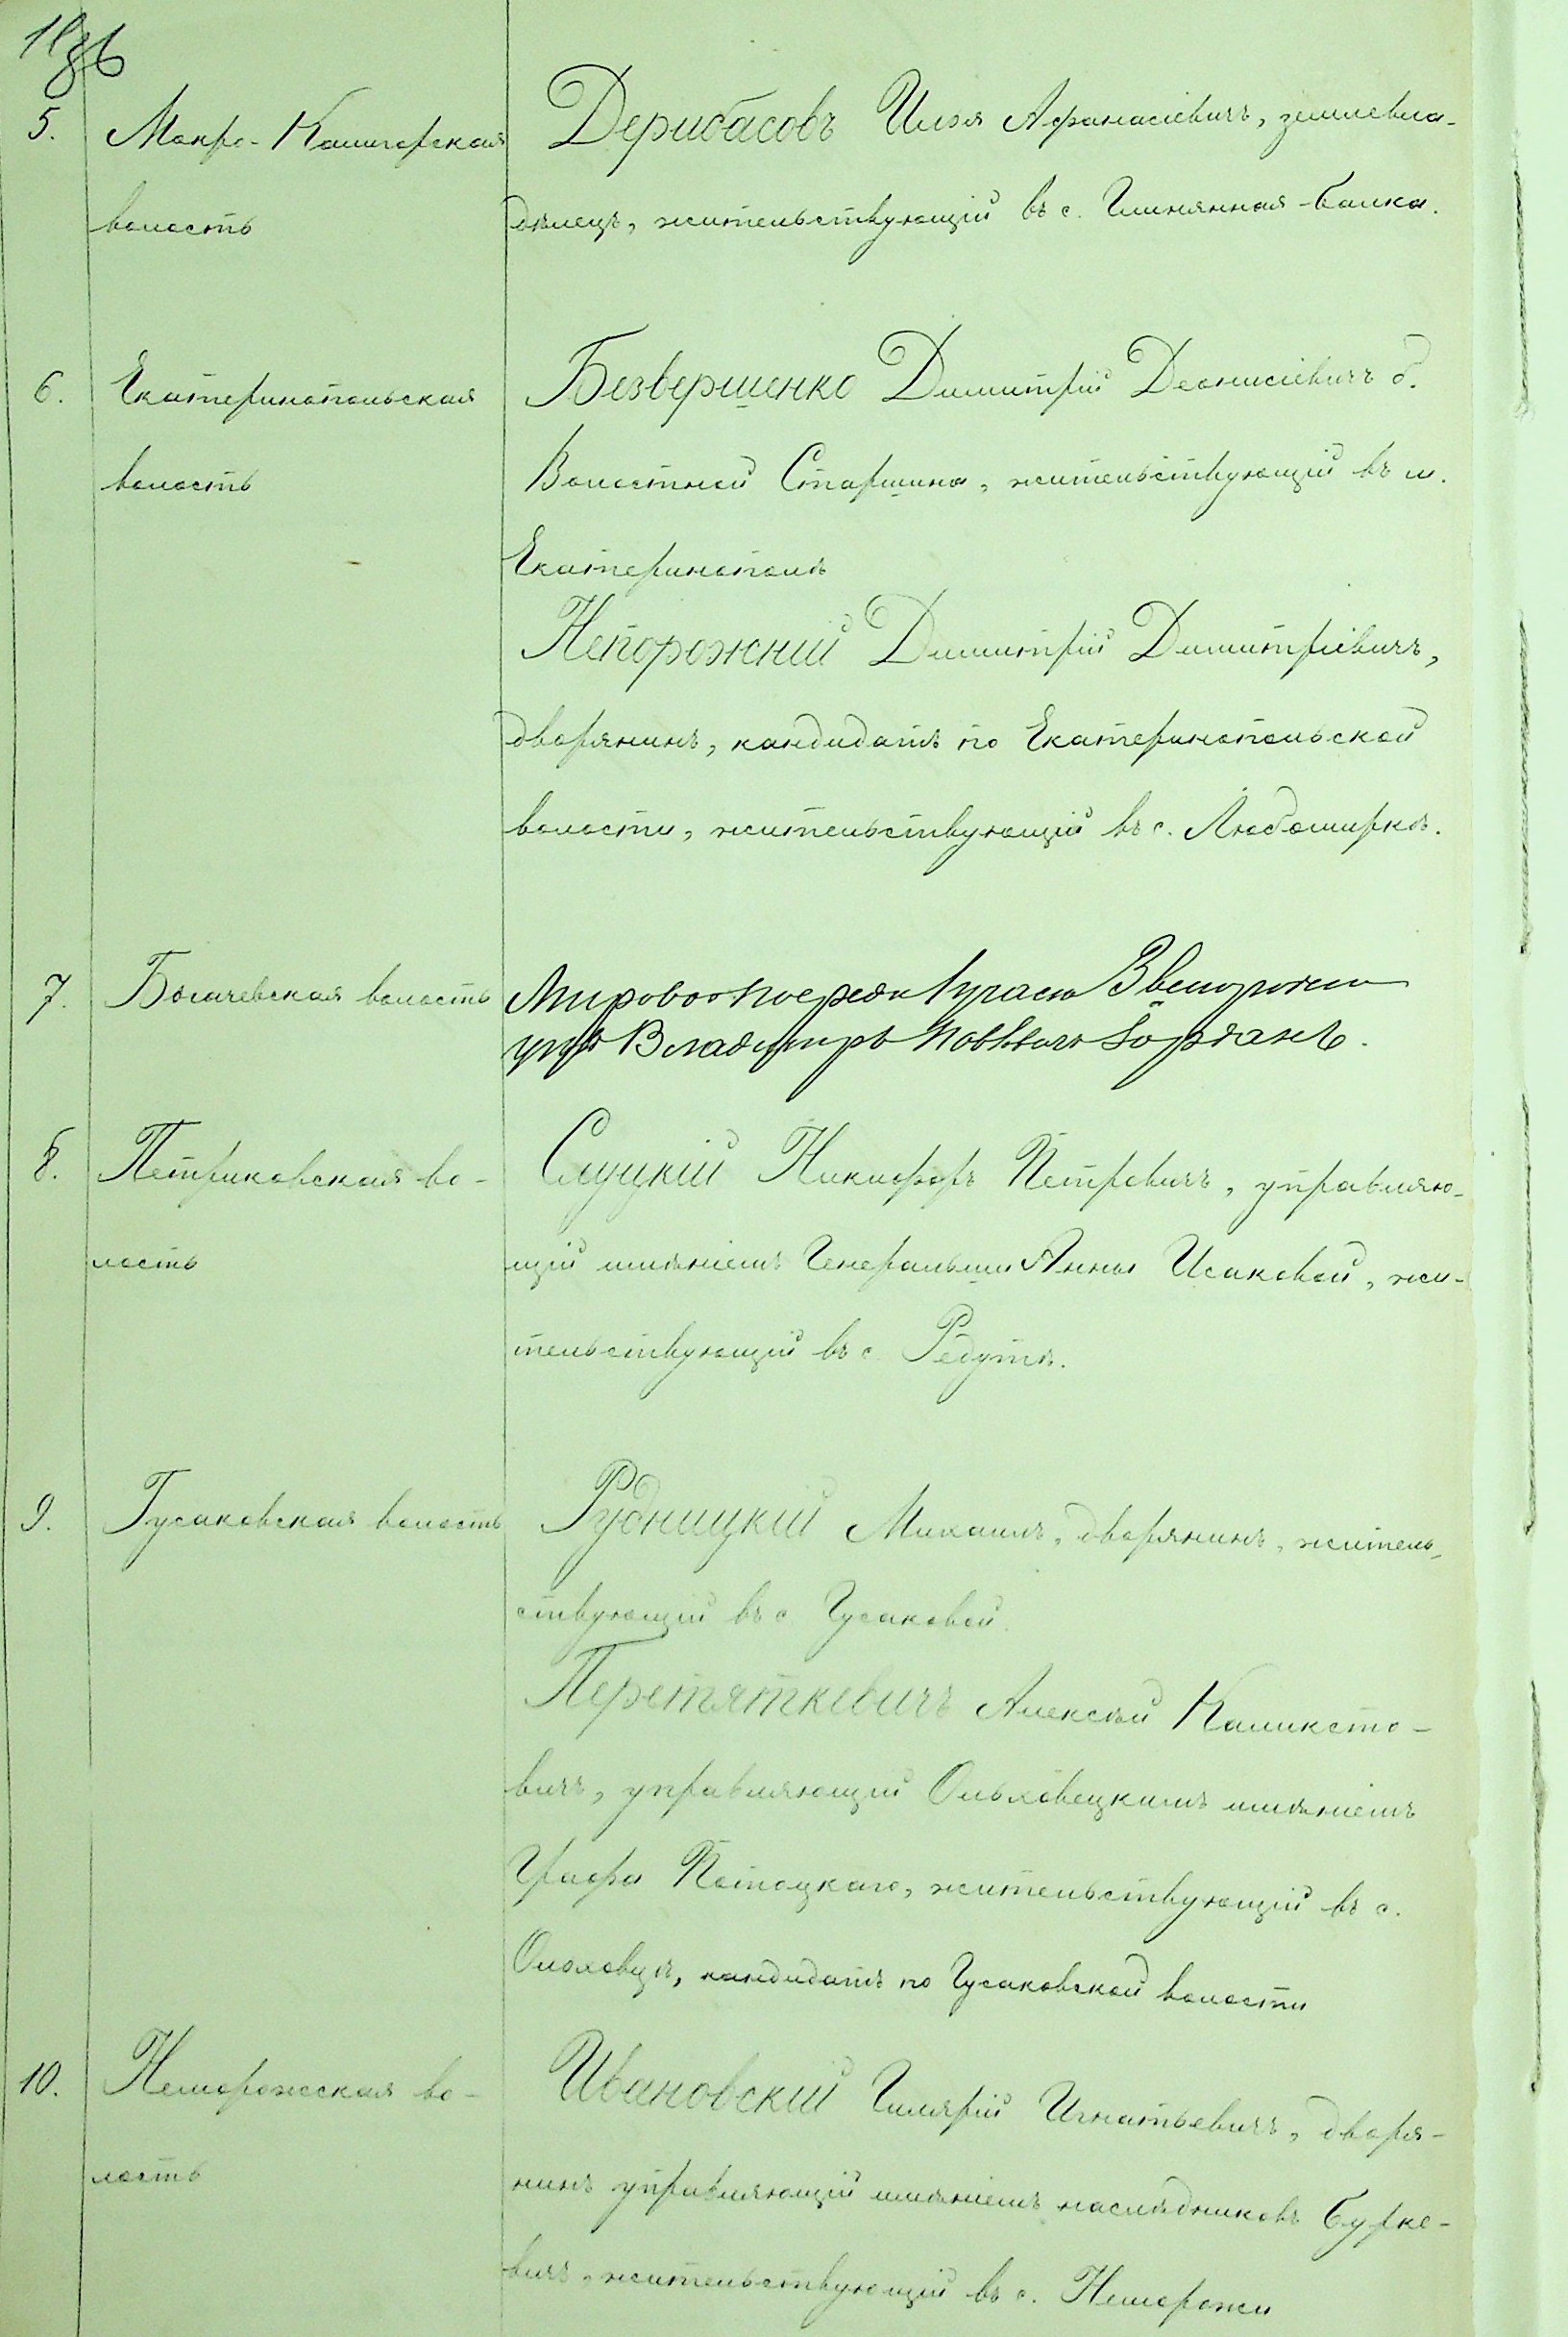 5. Мокро-Калигорская Дерибасовъ Илья Афанасіевичъ, землевла-
волость дѣлецъ, жительствующій въ с. Глинянная-балка.
6. Екатеринопольская Безвершенко Димитрій Деонисіевичъ б.
волость Волостной Старшина, жительствующій въ м.
Екатеринополѣ
Непорожній Димитрій Димитріевичъ,
дворянинъ, кандидатъ по Екатеринопольской
волости, жительствующій въ с. Любомиркѣ.
7. Богачевская волость Мировой посредн участка Звенигородск
уѣзда Владиміръ
8. Петриковская во- Слуцкій Никифоръ Петровичъ, управляю-
лость щій имѣніемъ Генеральши Анны Исаковой, жи-
тельствующій въ с. Редутѣ.
9. Гусаковская волость Рудницкій Михаилъ, дворянинъ, житель-
ствующій въ с. Гусаковой.
Перетяткевичъ Алексѣй Каликсто-
вичъ, управляющій Ольховецкимъ имѣніемъ
Графа Потоцкаго, жительствующій въ с.
Ольховцѣ, кандидатъ по Гусаковской волости
10. Неморожская во- Ивановскій Гилярій Игнатьевичъ, дворя-
лость нинъ управляющій имѣніемъ наслѣдниковъ Бурке-
вичъ, жительствующій въ с. Неморожи